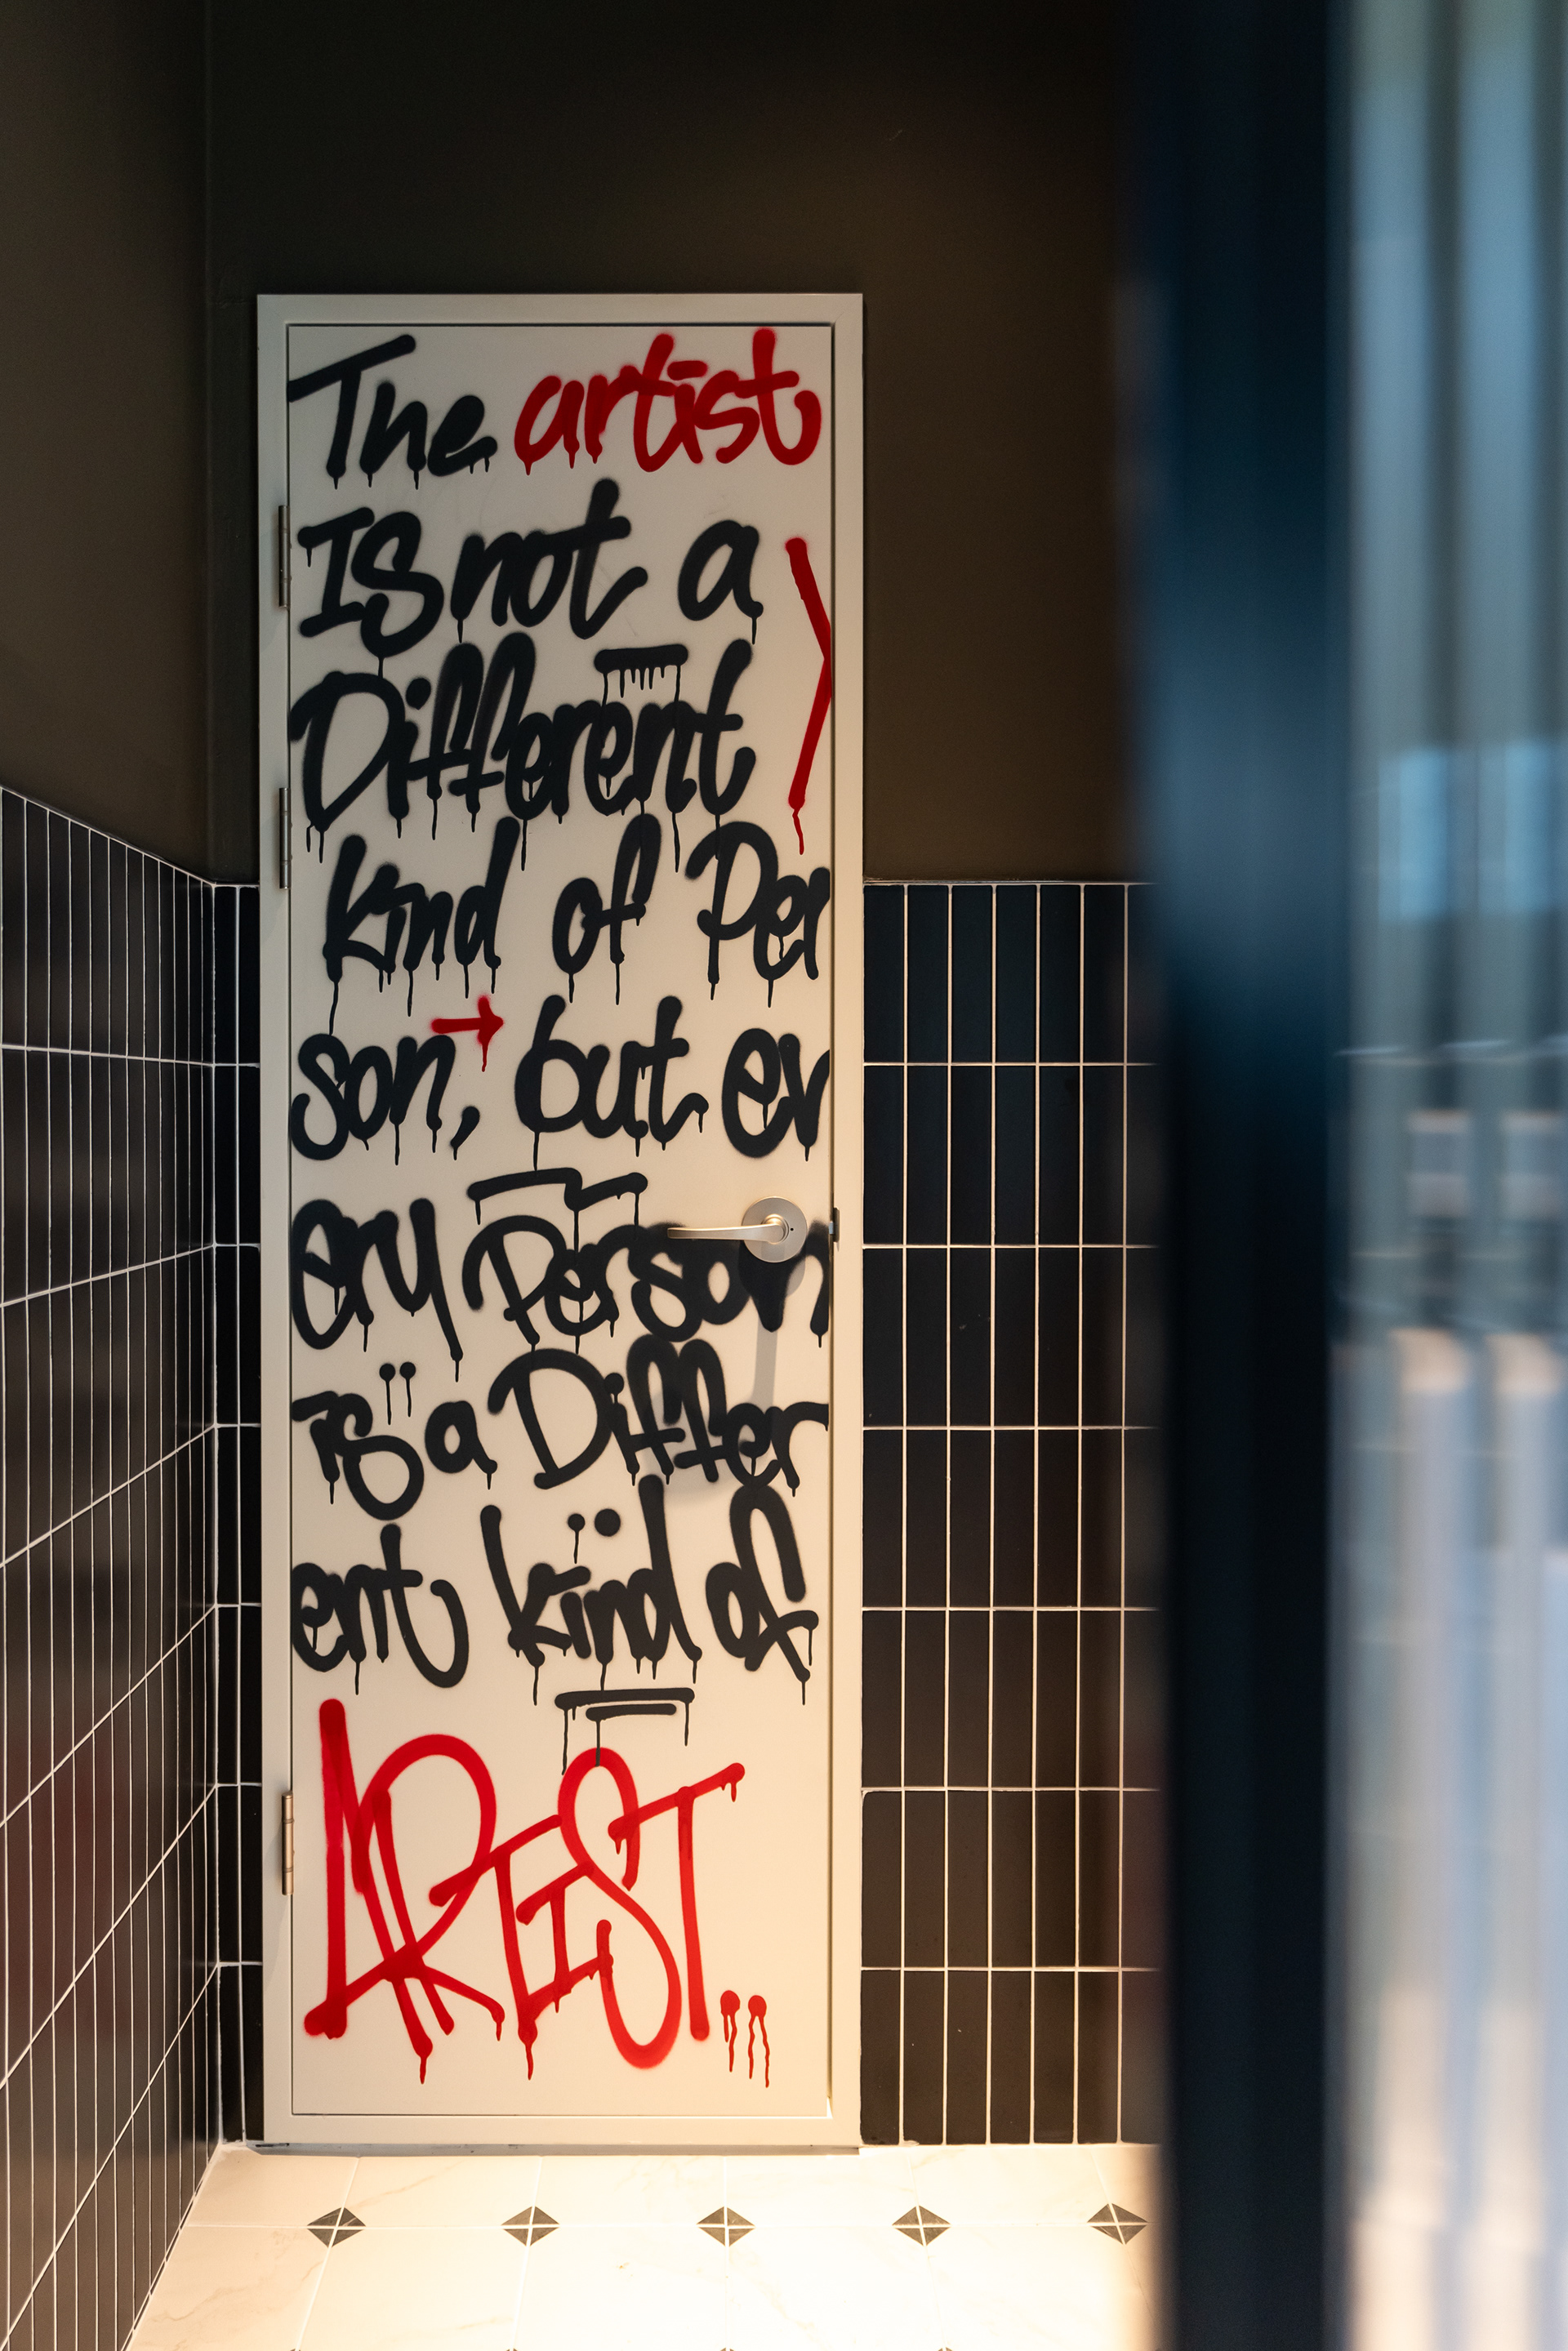 The artist
Is not a
Different
kind of Per
son, but ev
ery Person
is a Differ
ent kind of
ARTIST..